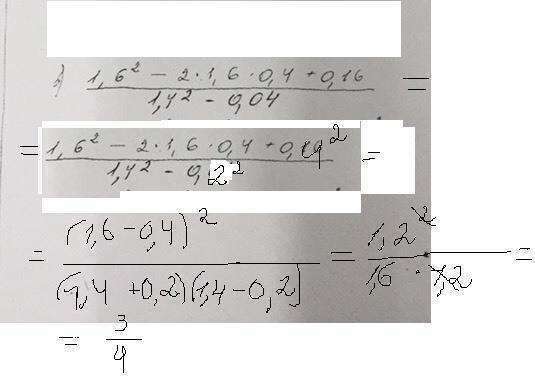 2) (1,6² − 2·1,6·0,4 + 0,16) / (1,4² − 0,04) =
= (1,6² − 2·1,6·0,4 + 0,4²) / (1,4² − 0,2²) =
= (1,6 − 0,4)² / ((1,4 + 0,2)(1,4 − 0,2)) = 1,2² / (1,6 · 1,2) =
= 3/4